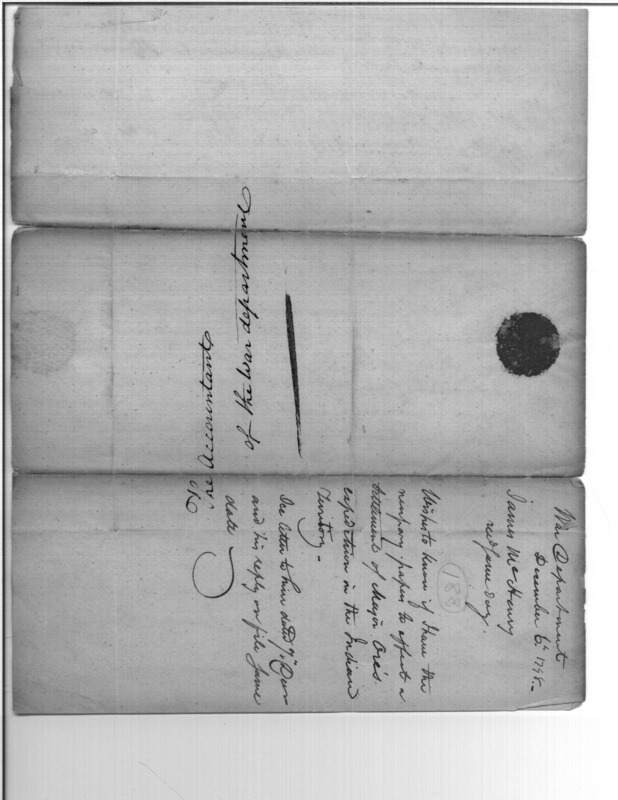 The Accountant
of the War department
War Department
December 6th 1798.
James McHenry
red same day.
188
Wishes to know if I have the
necessary papers to effect a
settlement of Major Ore's
expedition in the Indian
Territory.
See letter to him dated 7th Decr
and his reply on file same
date